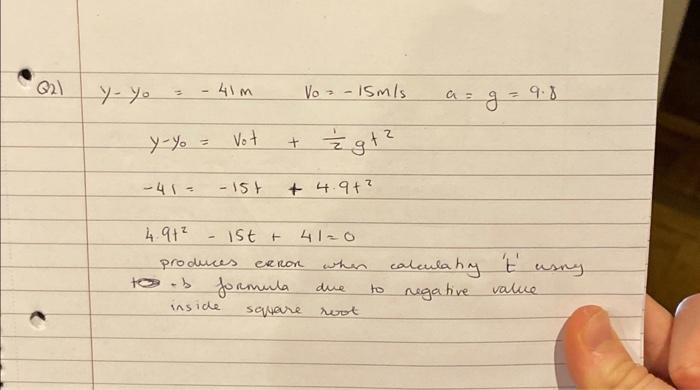 Q2) y-y₀ = -41m V₀ = -15m/s a = g = 9.8
y-y₀ = V₀t + ½ gt²
-41 = -15t + 4.9t²
4.9t² - 15t + 41 = 0
produces error when calculating 't' using
-b formula due to negative value
inside square root